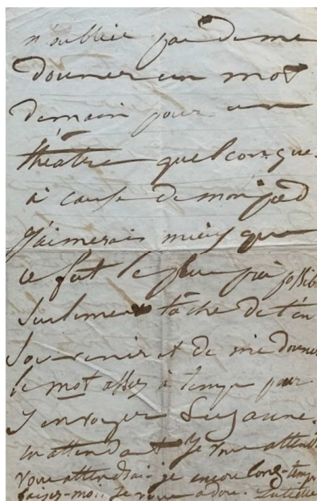 n'oublie pas de me
donner un mot
demain pour un
théâtre quelconque
à cause de mon pied
J'aimerais mieux que
ce fut le plus près possib
Seulement tâche de t'en
Souvenir et de me donner
le mot assez à temps pour
y envoyer Suzanne.
en attendant Je vous attends
vous attendrai-je encore long-temps
baisez-moi. Je vous adore. Juliette